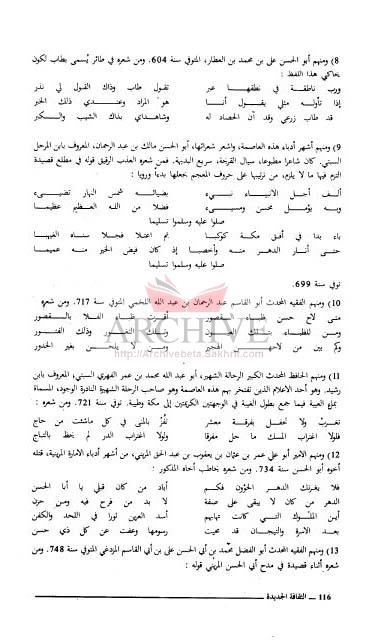 8) ومنهم أبو الحسن علي بن محمد بن العطار، المتوفي سنة 604. ومن شعره في طائر يُسمى بطاب لكون
يحاكي هذا اللفظ :
ورب ناطقة في نطقها عبر تقول طاب وذاك القول لي نذر
إذا تأولته مثلي يقول أنا هو المراد وعندي ذلك الخبر
قد طاب زرعي وقد آن الحصاد له وشاهداي بذاك الشيب والكبر
9) ومنهم أشهر أدباء هذه العاصمة، واشعر شعرائها، أبو الحسن مالك بن عبد الرحمان، المعروف بابن المرحل
السبتي. كان شاعرا مطبوعا، سيال القريحة، سريع البديهة. فمن شعره العذب الرقيق قوله في مطلع قصيدة
التزم فيها ما لا يلزم، من ترتيبها على حروف المعجم جعلها بدءاً ورويا :
ألف أجل الأنبياء نبيء بضيائه شمس النهار تضيء
وبه يؤمل محسن ومسيء فضلا من الله العظيم عظيما
صلوا عليه وسلموا تسليما
باء بدا في أفق مكة كوكبا ثم اعتلا فجلا سناه الغيهبا
حتى أنار الدهر منه وأخصبا إذ كان فيض الخير منه عميما
صلوا عليه وسلموا تسليما
توفي سنة 699.
10) ومنهم الفقيه المحدث أبو القاسم عبد الرحمان بن عبد الله اللخمي المتوفي سنة 717. ومن شعره
متى لاح حسن ظباء القصور أقرت ظباء الفلا بالقصور
ومن للظباء بتلك العيون وتلك الثغور وذاك الفتور
وكم بين من لاحها الهجير ومن لا يلحن بغير الخدور
11) ومنهم الحافظ المحدث الكبير الرحالة الشهير، أبو عبد الله محمد بن عمر الفهري السبتي، المعروف بابن
رشيد. وهو أحد الاعلام الذين تفتخر بهم هذه العاصمة وهو صاحب الرحلة الشهيرة النادرة الوجود، المسماة
بملء العيبة فيما جمع بطول الغيبة في الوجهتين الكريمتين إلى مكة وطيبة. توفي سنة 721. ومن شعره :
تغربْ ولا تحفل بفرقة معشر تفُزْ بالمنى في كل ماشئت من حاج
فلولا اغتراب المسك ما حل مفرقا ولولا اغتراب الدر لم يحظ بالتاج
12) ومنهم الامير أبو علي عمر بن عثمان بن يعقوب بن عبد الحق المريني، من أشهر أدباء الامارة المرينية، قتله
أخوه أبو الحسن سنة 734. ومن شعره يخاطب أخاه المذكور :
فلا يغرنك الدهر الخؤون فكم أباد من كان قبلي يا أبا الحسن
الدهر من كان لا يبقى على صفة لا بد من فرح فيه ومن حزن
أين الملوك التي كانت تهابهم أسد العرين ثووا في اللحد والكفن
بعد الاسرة والتيجان قد محيت رسومها وعفت عن كل ذي حسن
13) ومنهم الفقيه المحدث أبو الفضل محمد بن أبي الحسن علي بن أبي القاسم المزدغي المتوفي سنة 748. ومن
شعره أثناء قصيدة في مدح أبي الحسن المريني قوله :
116 ــ الثقافة الجديدة ــ
ARCHIVE
http://Archivebeta.Sakhrit.com